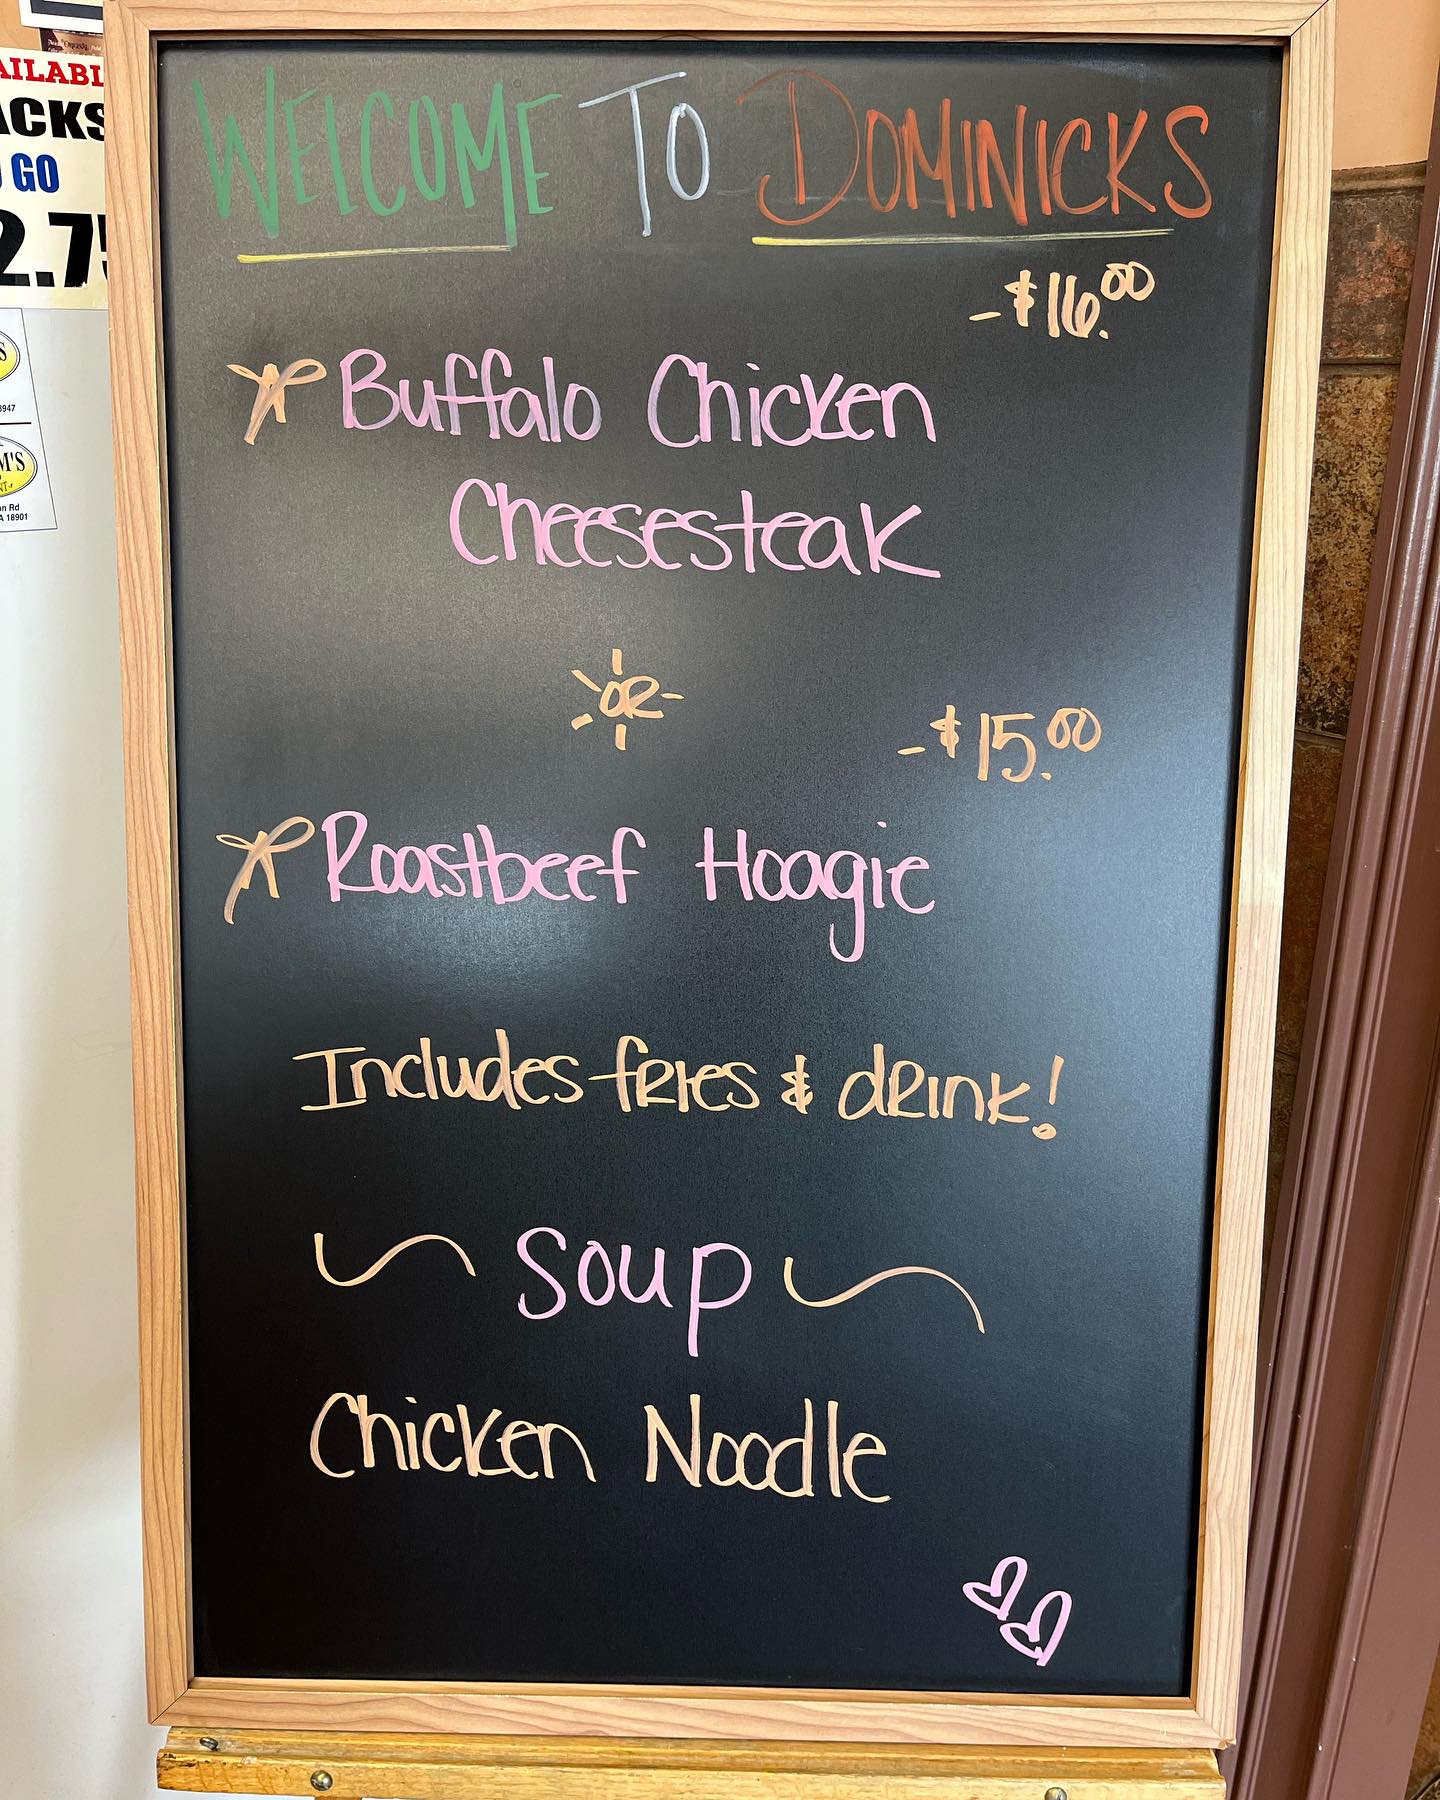 AILABL
ACKS
GO
2.75
WELCOME TO DOMINICKS
-$16.00
Buffalo Chicken
Cheesesteak
OR
-$15.00
Roastbeef Hoagie
Includes fries & drink!
Soup
Chicken Noodle
8947
M'S
n Rd
A 18901